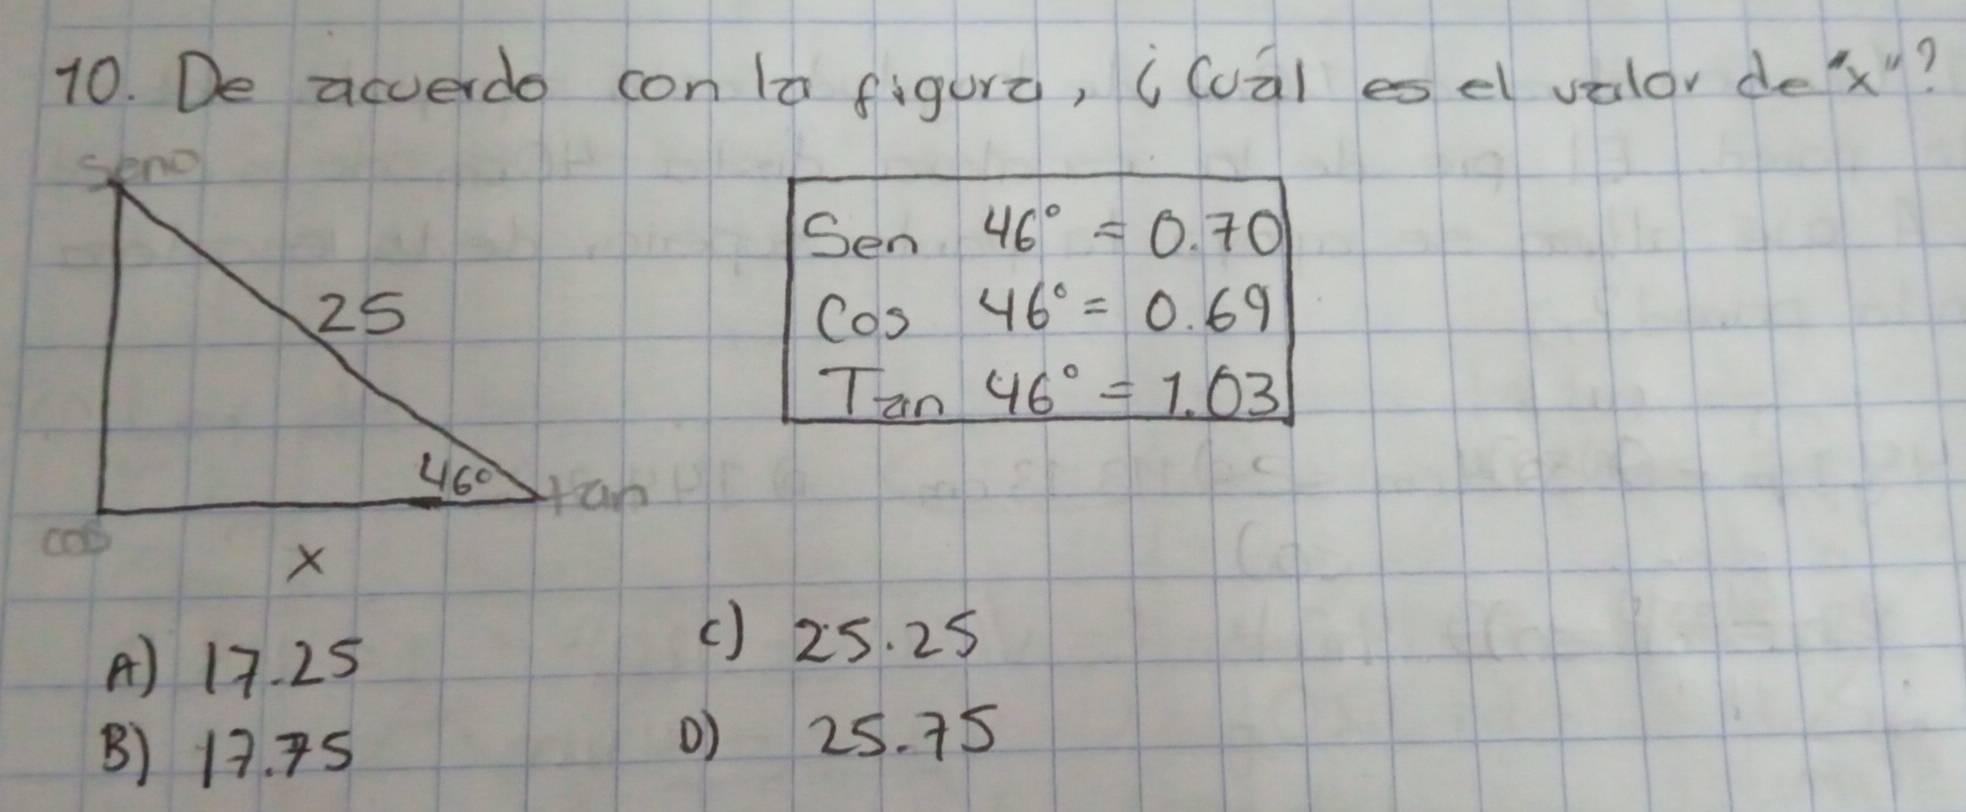 10. De acuerdo con la figura, ¿Cuál es el valor de "x"?
seno
25
46°
tan
cos
x
Sen 46° = 0.70
Cos 46° = 0.69
Tan 46° = 1.03
A) 17.25
B) 17.75
C) 25.25
D) 25.75